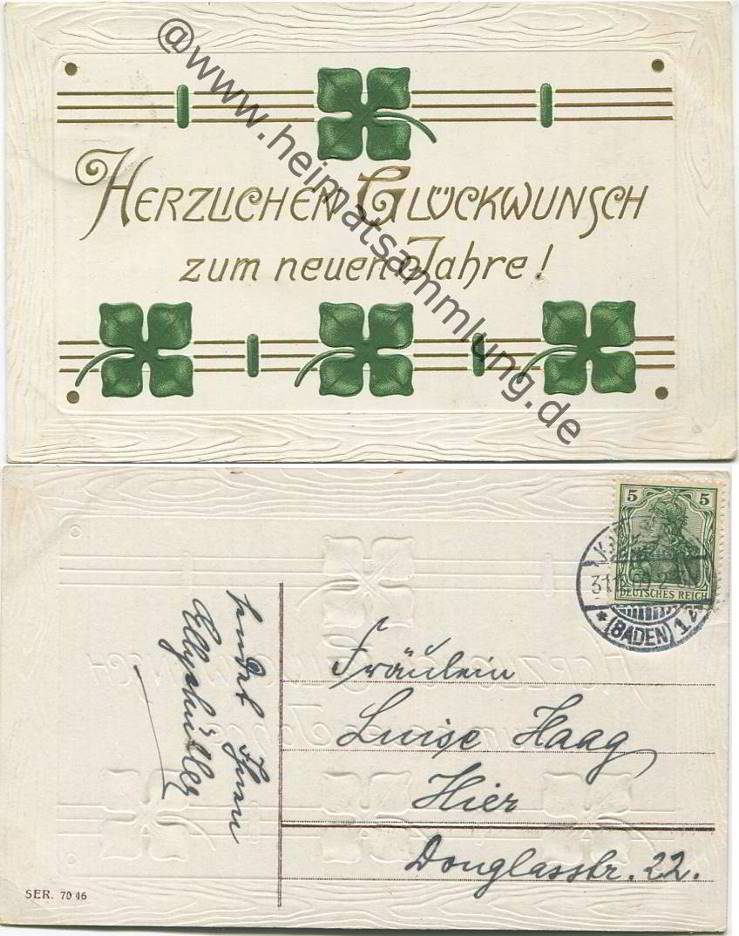 @www.heimatsammlung.de
HERZLICHEN GLÜCKWUNSCH
zum neuen Jahre!
5 5
DEUTSCHES REICH
31.
* (BADEN) 1
sendet Ihnen
Fräulein
Luise Haag
Hier
Douglasstr. 22.
SER. 7046